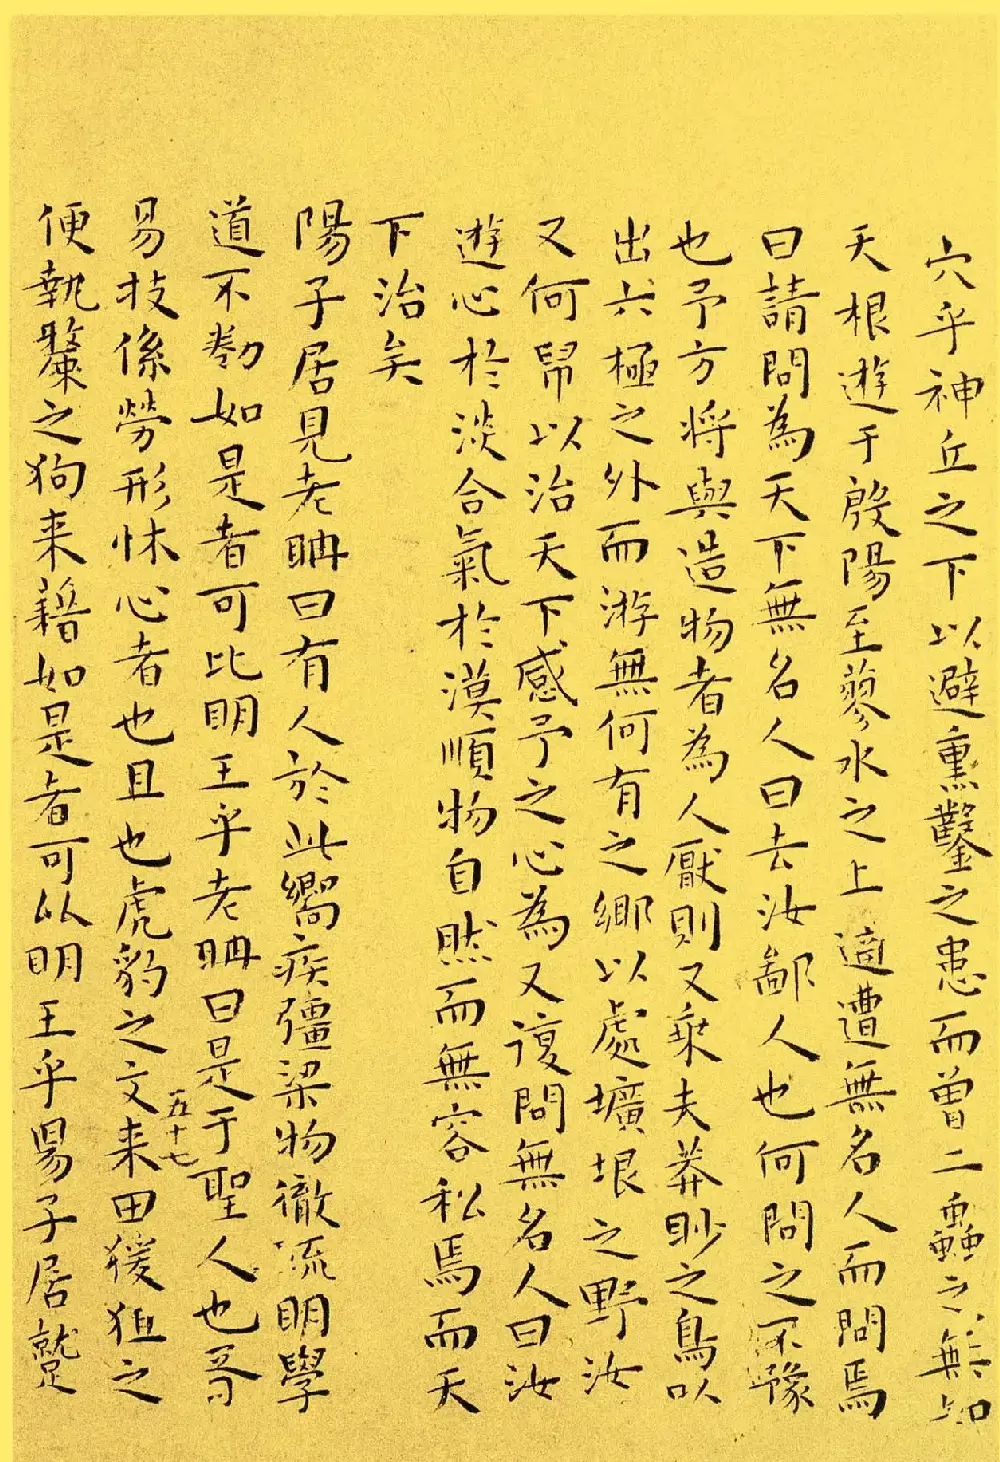 穴乎神丘之下以避熏鑿之患而曾二蟲之無知
天根遊于殷陽至蓼水之上適遭無名人而問焉
曰請問為天下無名人曰去汝鄙人也何問之不豫
也予方將與造物者為人厭則又乗夫莽眇之鳥以
出六極之外而游無何有之鄉以處壙垠之野汝
又何帠以治天下感予之心為又復問無名人曰汝
遊心於淡合氣於漠順物自然而無容私焉而天
下治矣
陽子居見老聃曰有人於此嚮疾彊梁物徹疏明學
道不勌如是者可比明王乎老聃曰是于聖人也胥
易技係勞形怵心者也且也虎豹之文来田猨狙之
五十七
便執斄之狗来藉如是者可以明王乎陽子居蹵